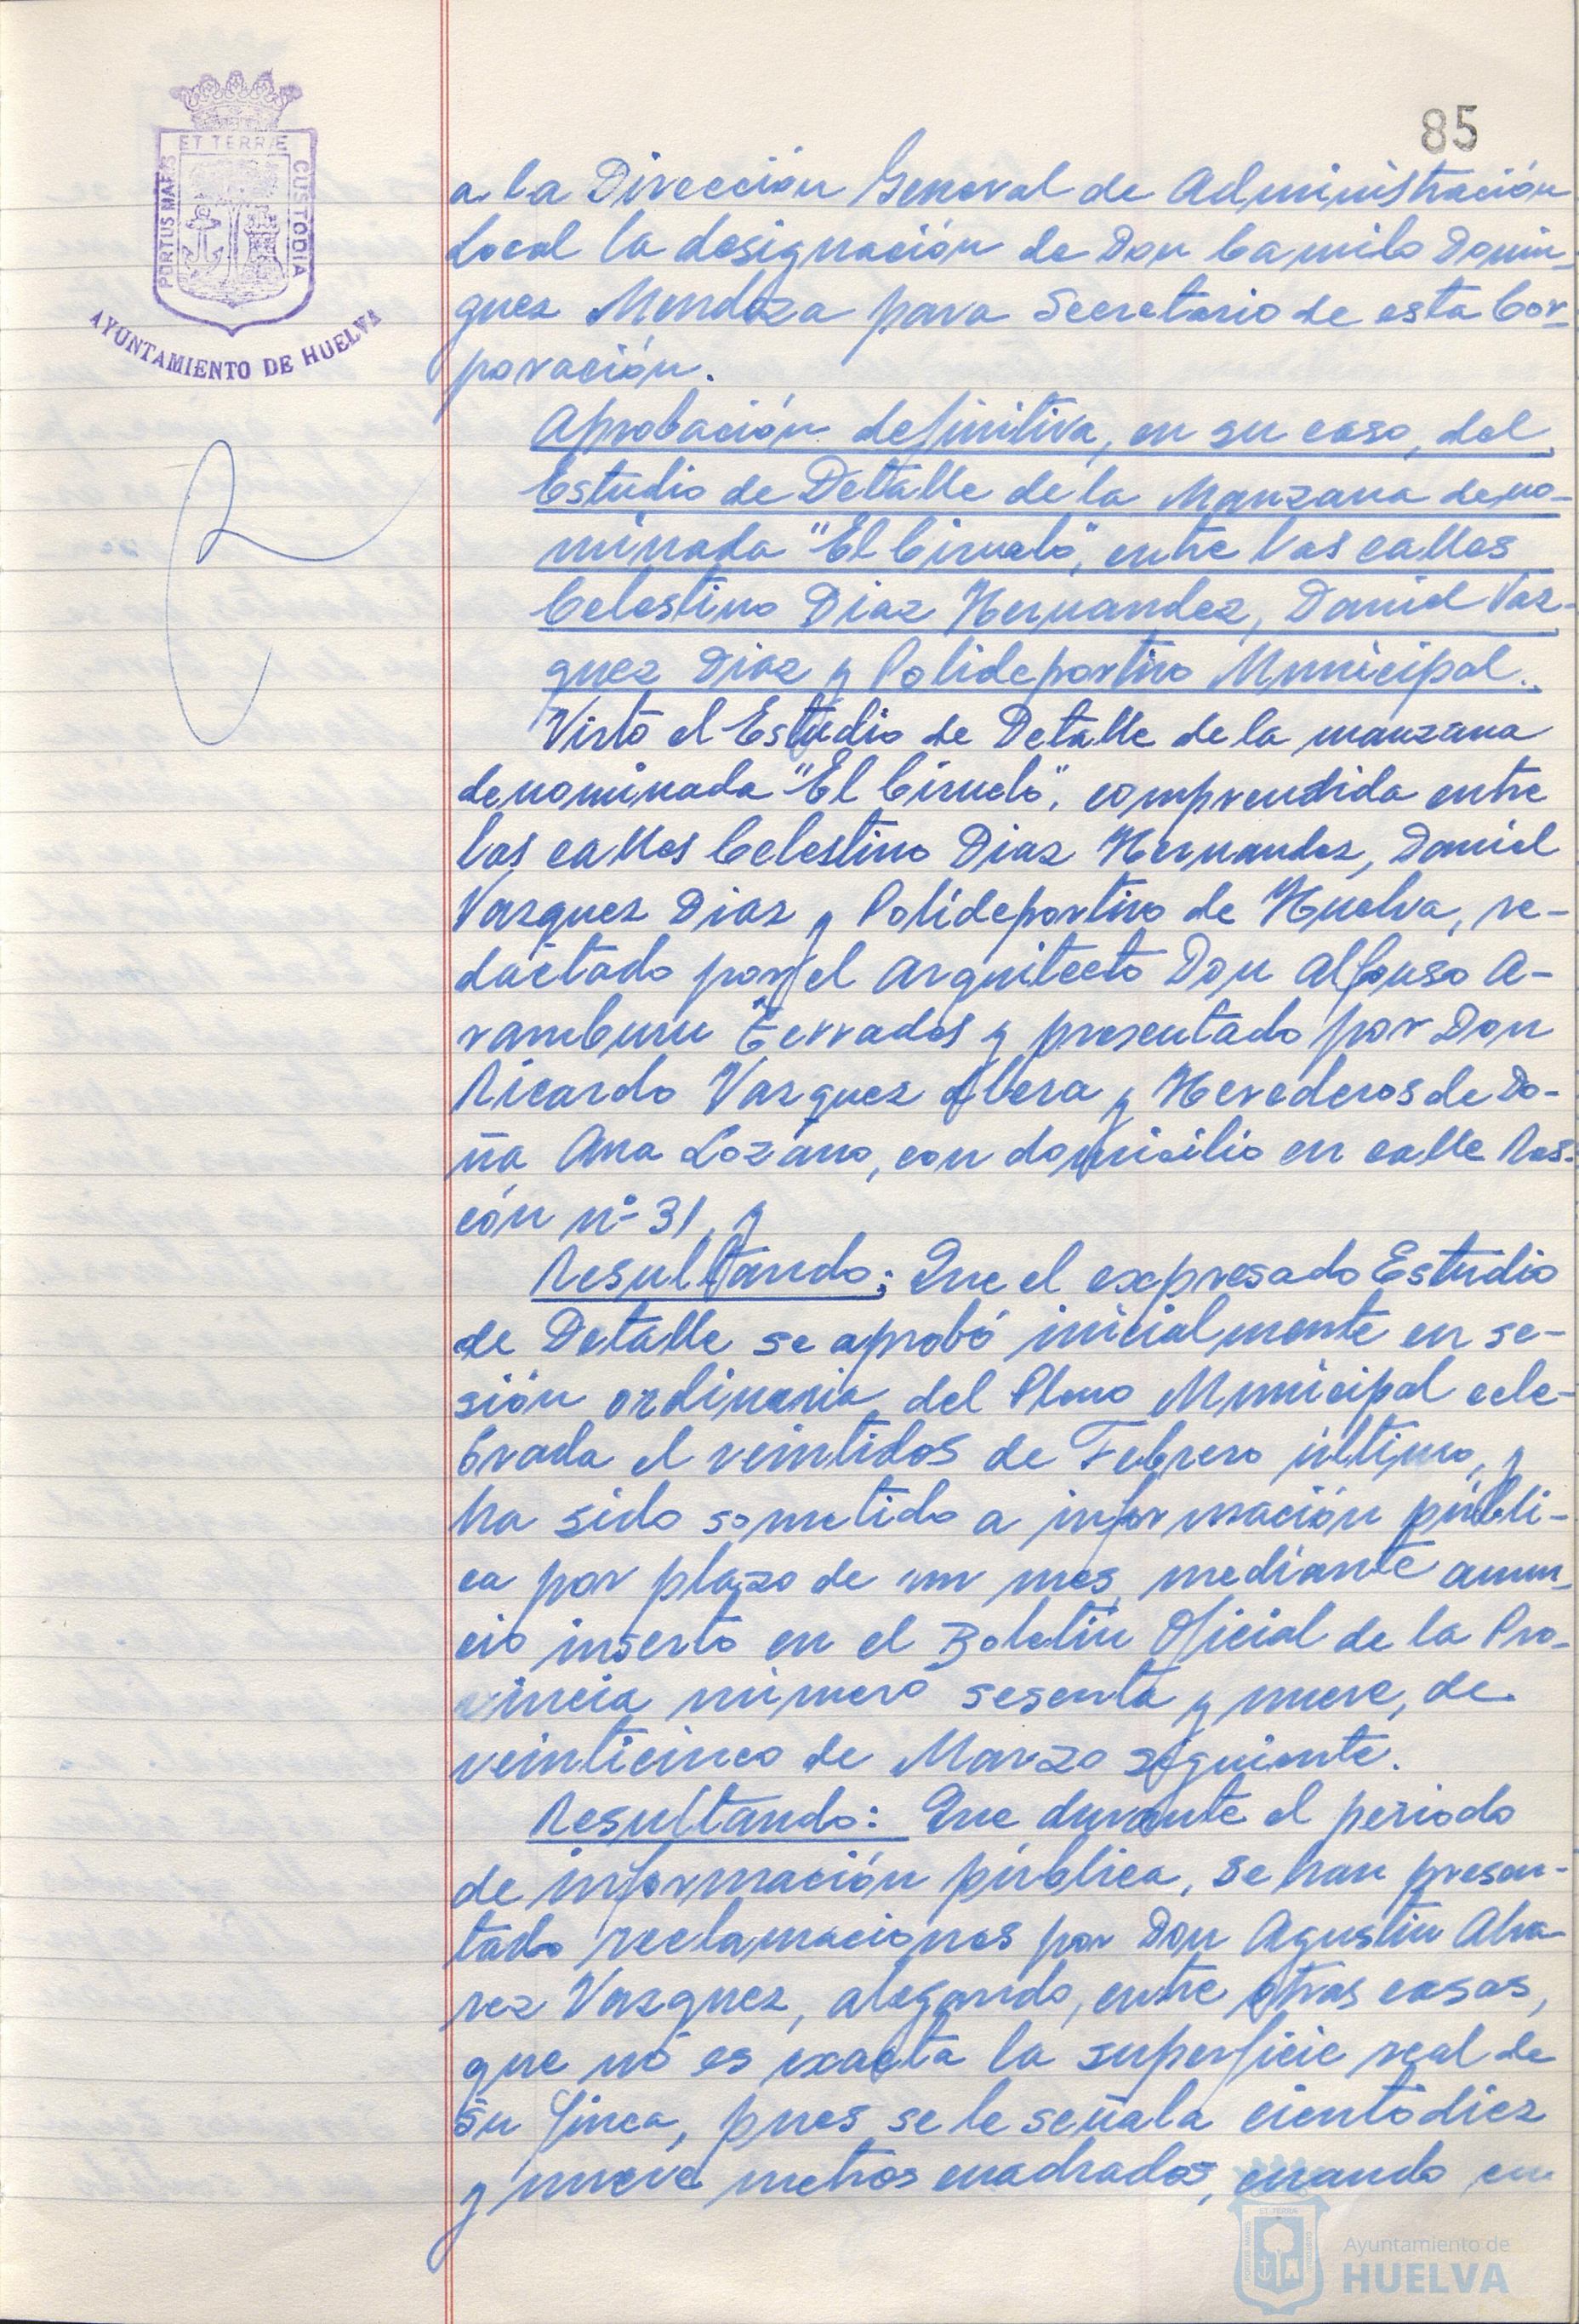 85
ET TERRÆ
PORTUS MARIS
CUSTODIA
AYUNTAMIENTO DE HUELVA
a la Dirección General de Administración
Local la designación de Don Camilo Domin-
guez Mendoza para Secretario de esta Cor-
poración.
Aprobación definitiva, en su caso, del
Estudio de Detalle de la Manzana deno-
minada "El Ciruelo", entre las calles
Celestino Diaz Hernandez, Daniel Vaz-
quez Diaz y Polideportivo Municipal.
Visto el Estudio de Detalle de la manzana
denominada "El Ciruelo", comprendida entre
las calles Celestino Diaz Hernandez, Daniel
Vazquez Diaz y Polideportivo de Huelva, re-
dactado por el Arquitecto Don Alfonso A-
ramburu Terrados y presentado por Don
Ricardo Vazquez Albera y Herederos de Do-
ña Ana Lozano, con domicilio en calle Ras-
cón nº 31, y
Resultando: Que el expresado Estudio
de Detalle se aprobó inicialmente en se-
sión ordinaria del Pleno Municipal cele-
brada el veintidos de Febrero último, y
ha sido sometido a información públi-
ca por plazo de un mes, mediante anun-
cio inserto en el Boletín Oficial de la Pro-
vincia número sesenta y nueve, de
veinticinco de Marzo siguiente.
Resultando: Que durante el periodo
de información pública, se han presen-
tado reclamaciones por Don Agustin Alva-
rez Vazquez, alegando, entre otras cosas,
que no es exacta la superficie real de
su finca, pues se le señala ciento diez
y nueve metros cuadrados, cuando en
Ayuntamiento de
HUELVA